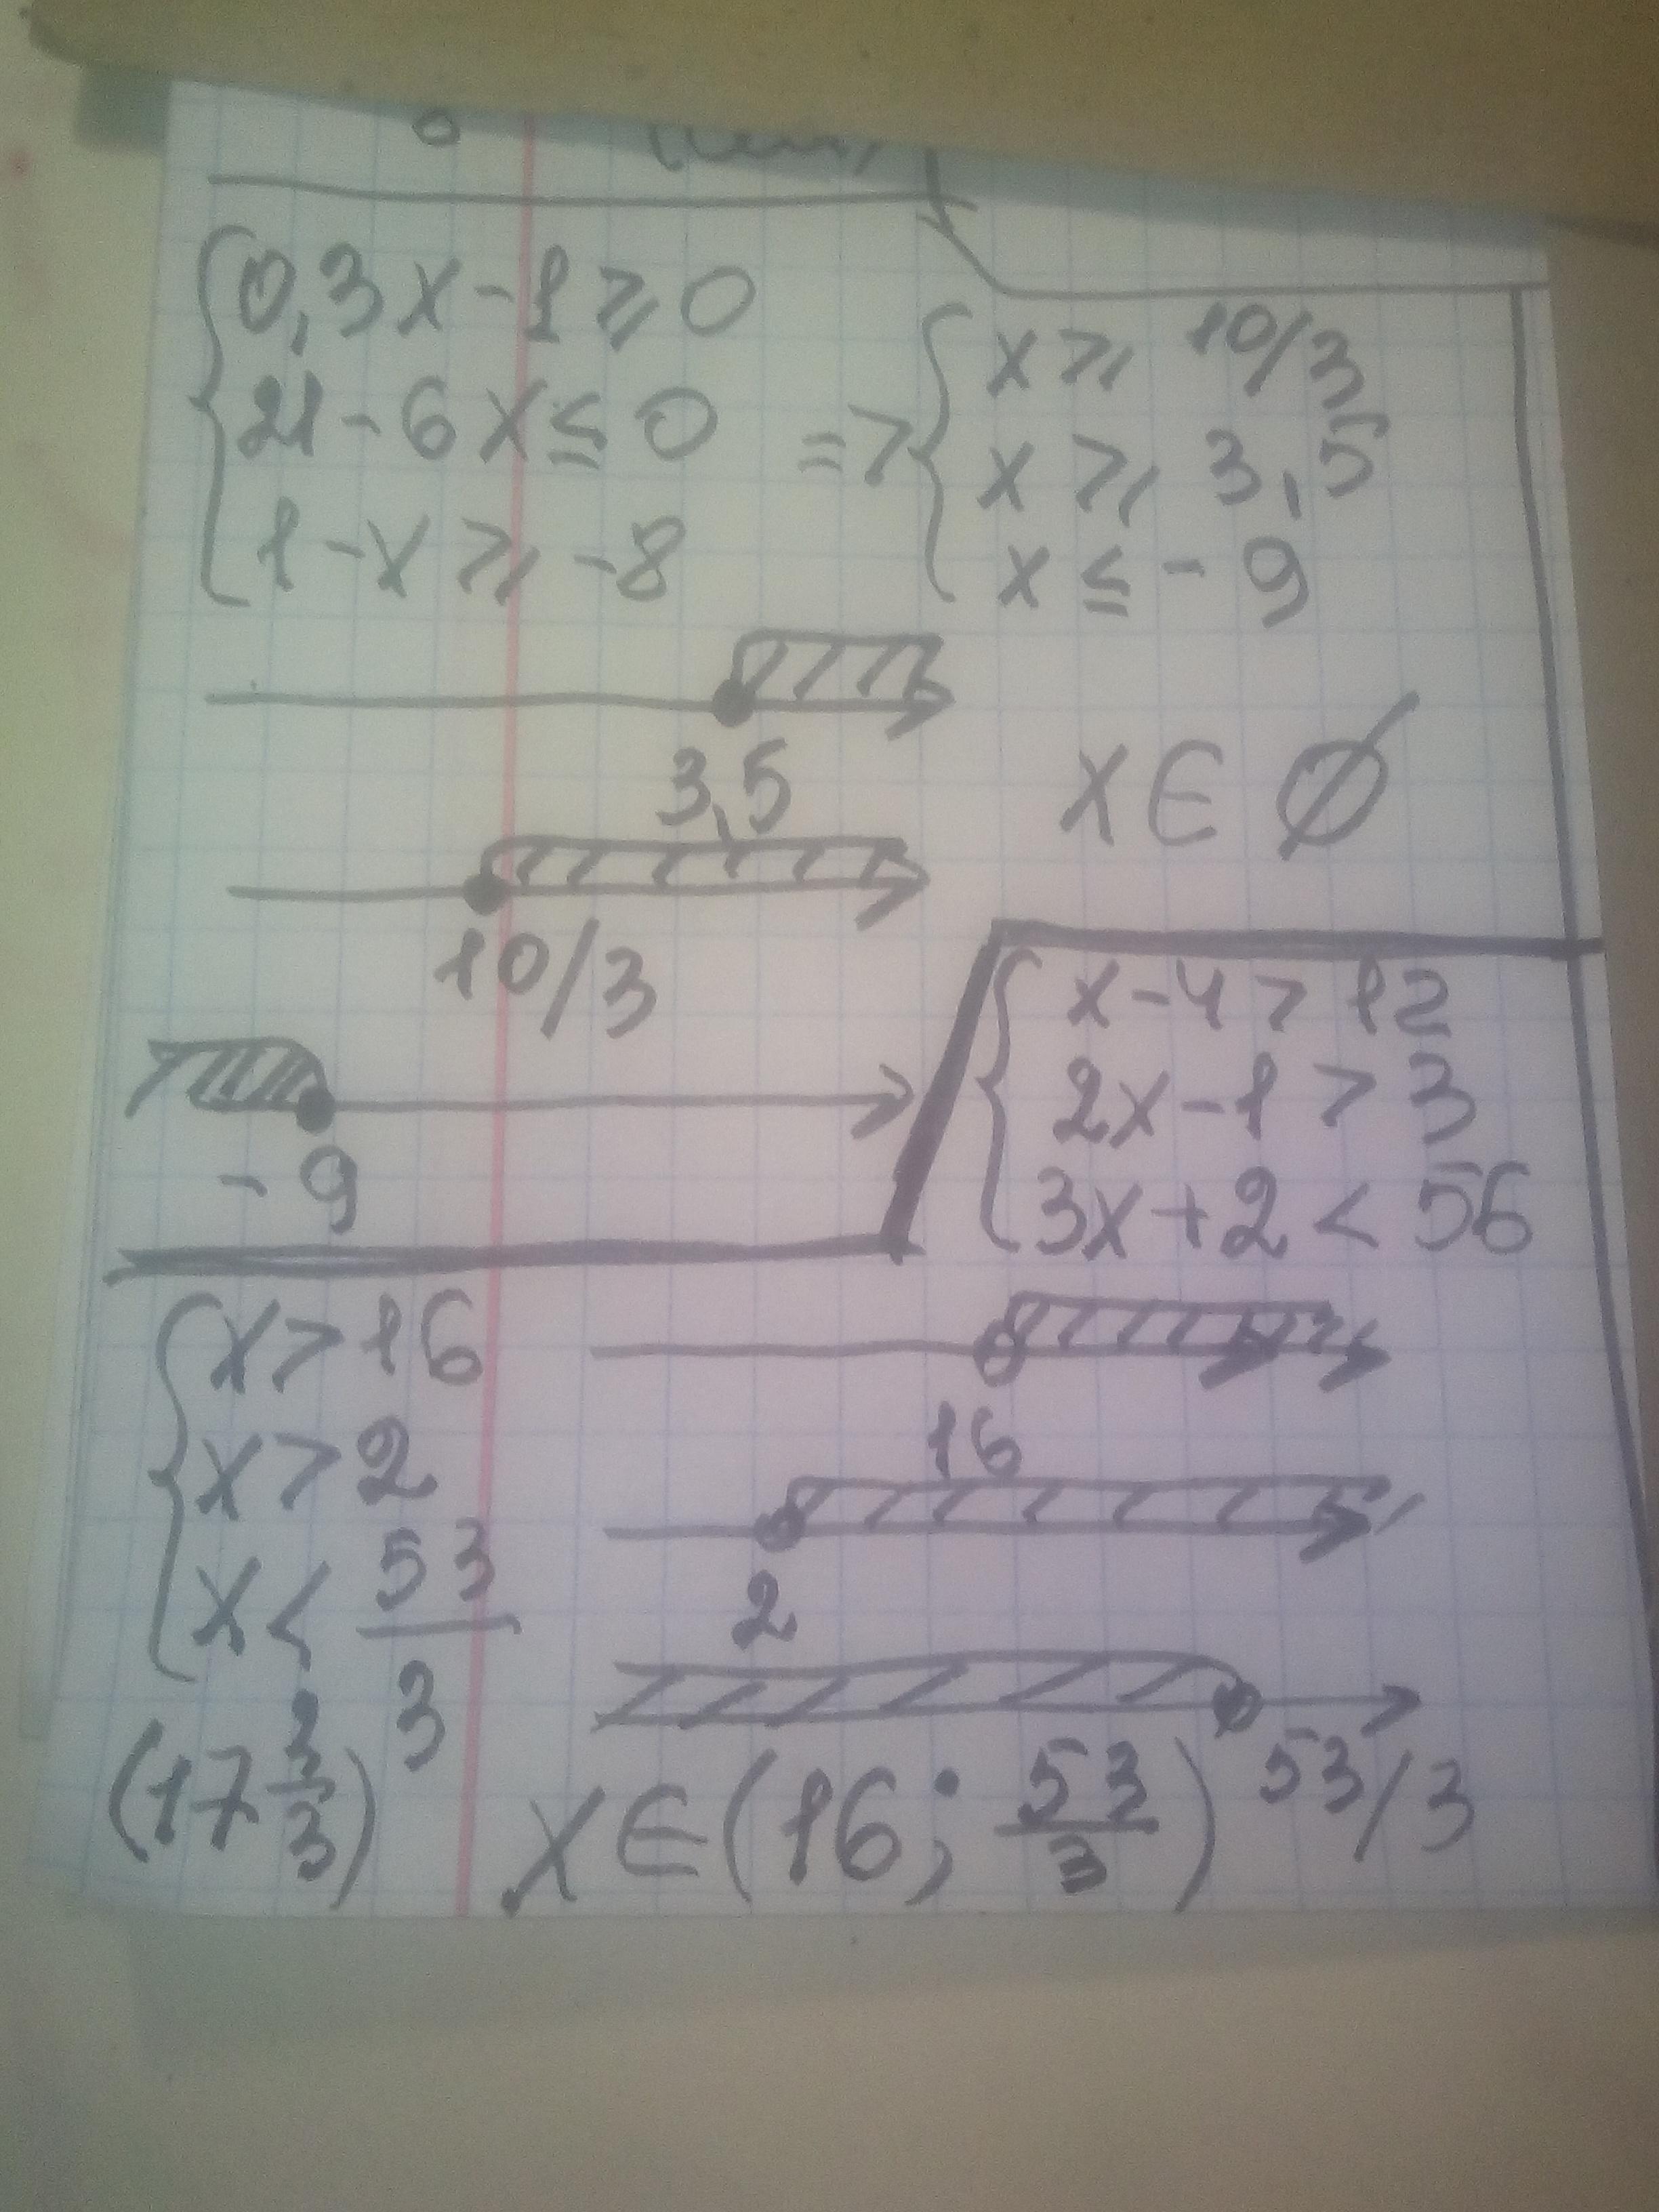 0,3x-1⩾0
21-6x≤0
1-x⩾-8
=>
x⩾10/3
x⩾3,5
x≤-9
3,5
10/3
-9
x∈∅
x-4>12
2x-1>3
3x+2<56
x>16
x>2
x<53/3
(17 2/3)
16
2
53/3
x∈(16; 53/3)